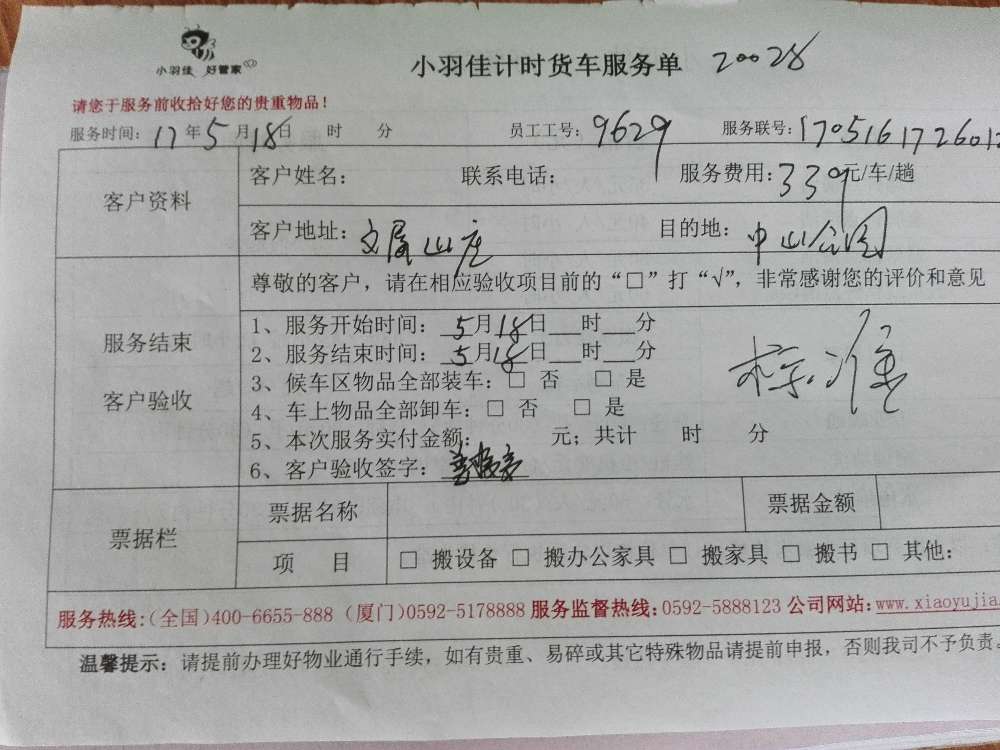 小羽佳 好管家
小羽佳计时货车服务单 20028
请您于服务前收拾好您的贵重物品！
服务时间：17年5月18日 时 分 员工工号：9629 服务联号：1705161726012
客户资料
客户姓名： 联系电话： 服务费用：339元/车/趟
客户地址：文屏山庄 目的地：中山公园
尊敬的客户，请在相应验收项目前的“□”打“√”，非常感谢您的评价和意见
服务结束
客户验收
1、服务开始时间：5月18日___时___分
2、服务结束时间：5月18日___时___分
3、候车区物品全部装车：□ 否 □ 是
4、车上物品全部卸车：□ 否 □ 是
5、本次服务实付金额： 元；共计 时 分
6、客户验收签字：
标准
票据栏
票据名称 票据金额
项 目 □ 搬设备 □ 搬办公家具 □ 搬家具 □ 搬书 □ 其他：
服务热线：（全国）400-6655-888（厦门）0592-5178888 服务监督热线：0592-5888123 公司网站：www.xiaoyujia
温馨提示：请提前办理好物业通行手续，如有贵重、易碎或其它特殊物品请提前申报，否则我司不予负责。